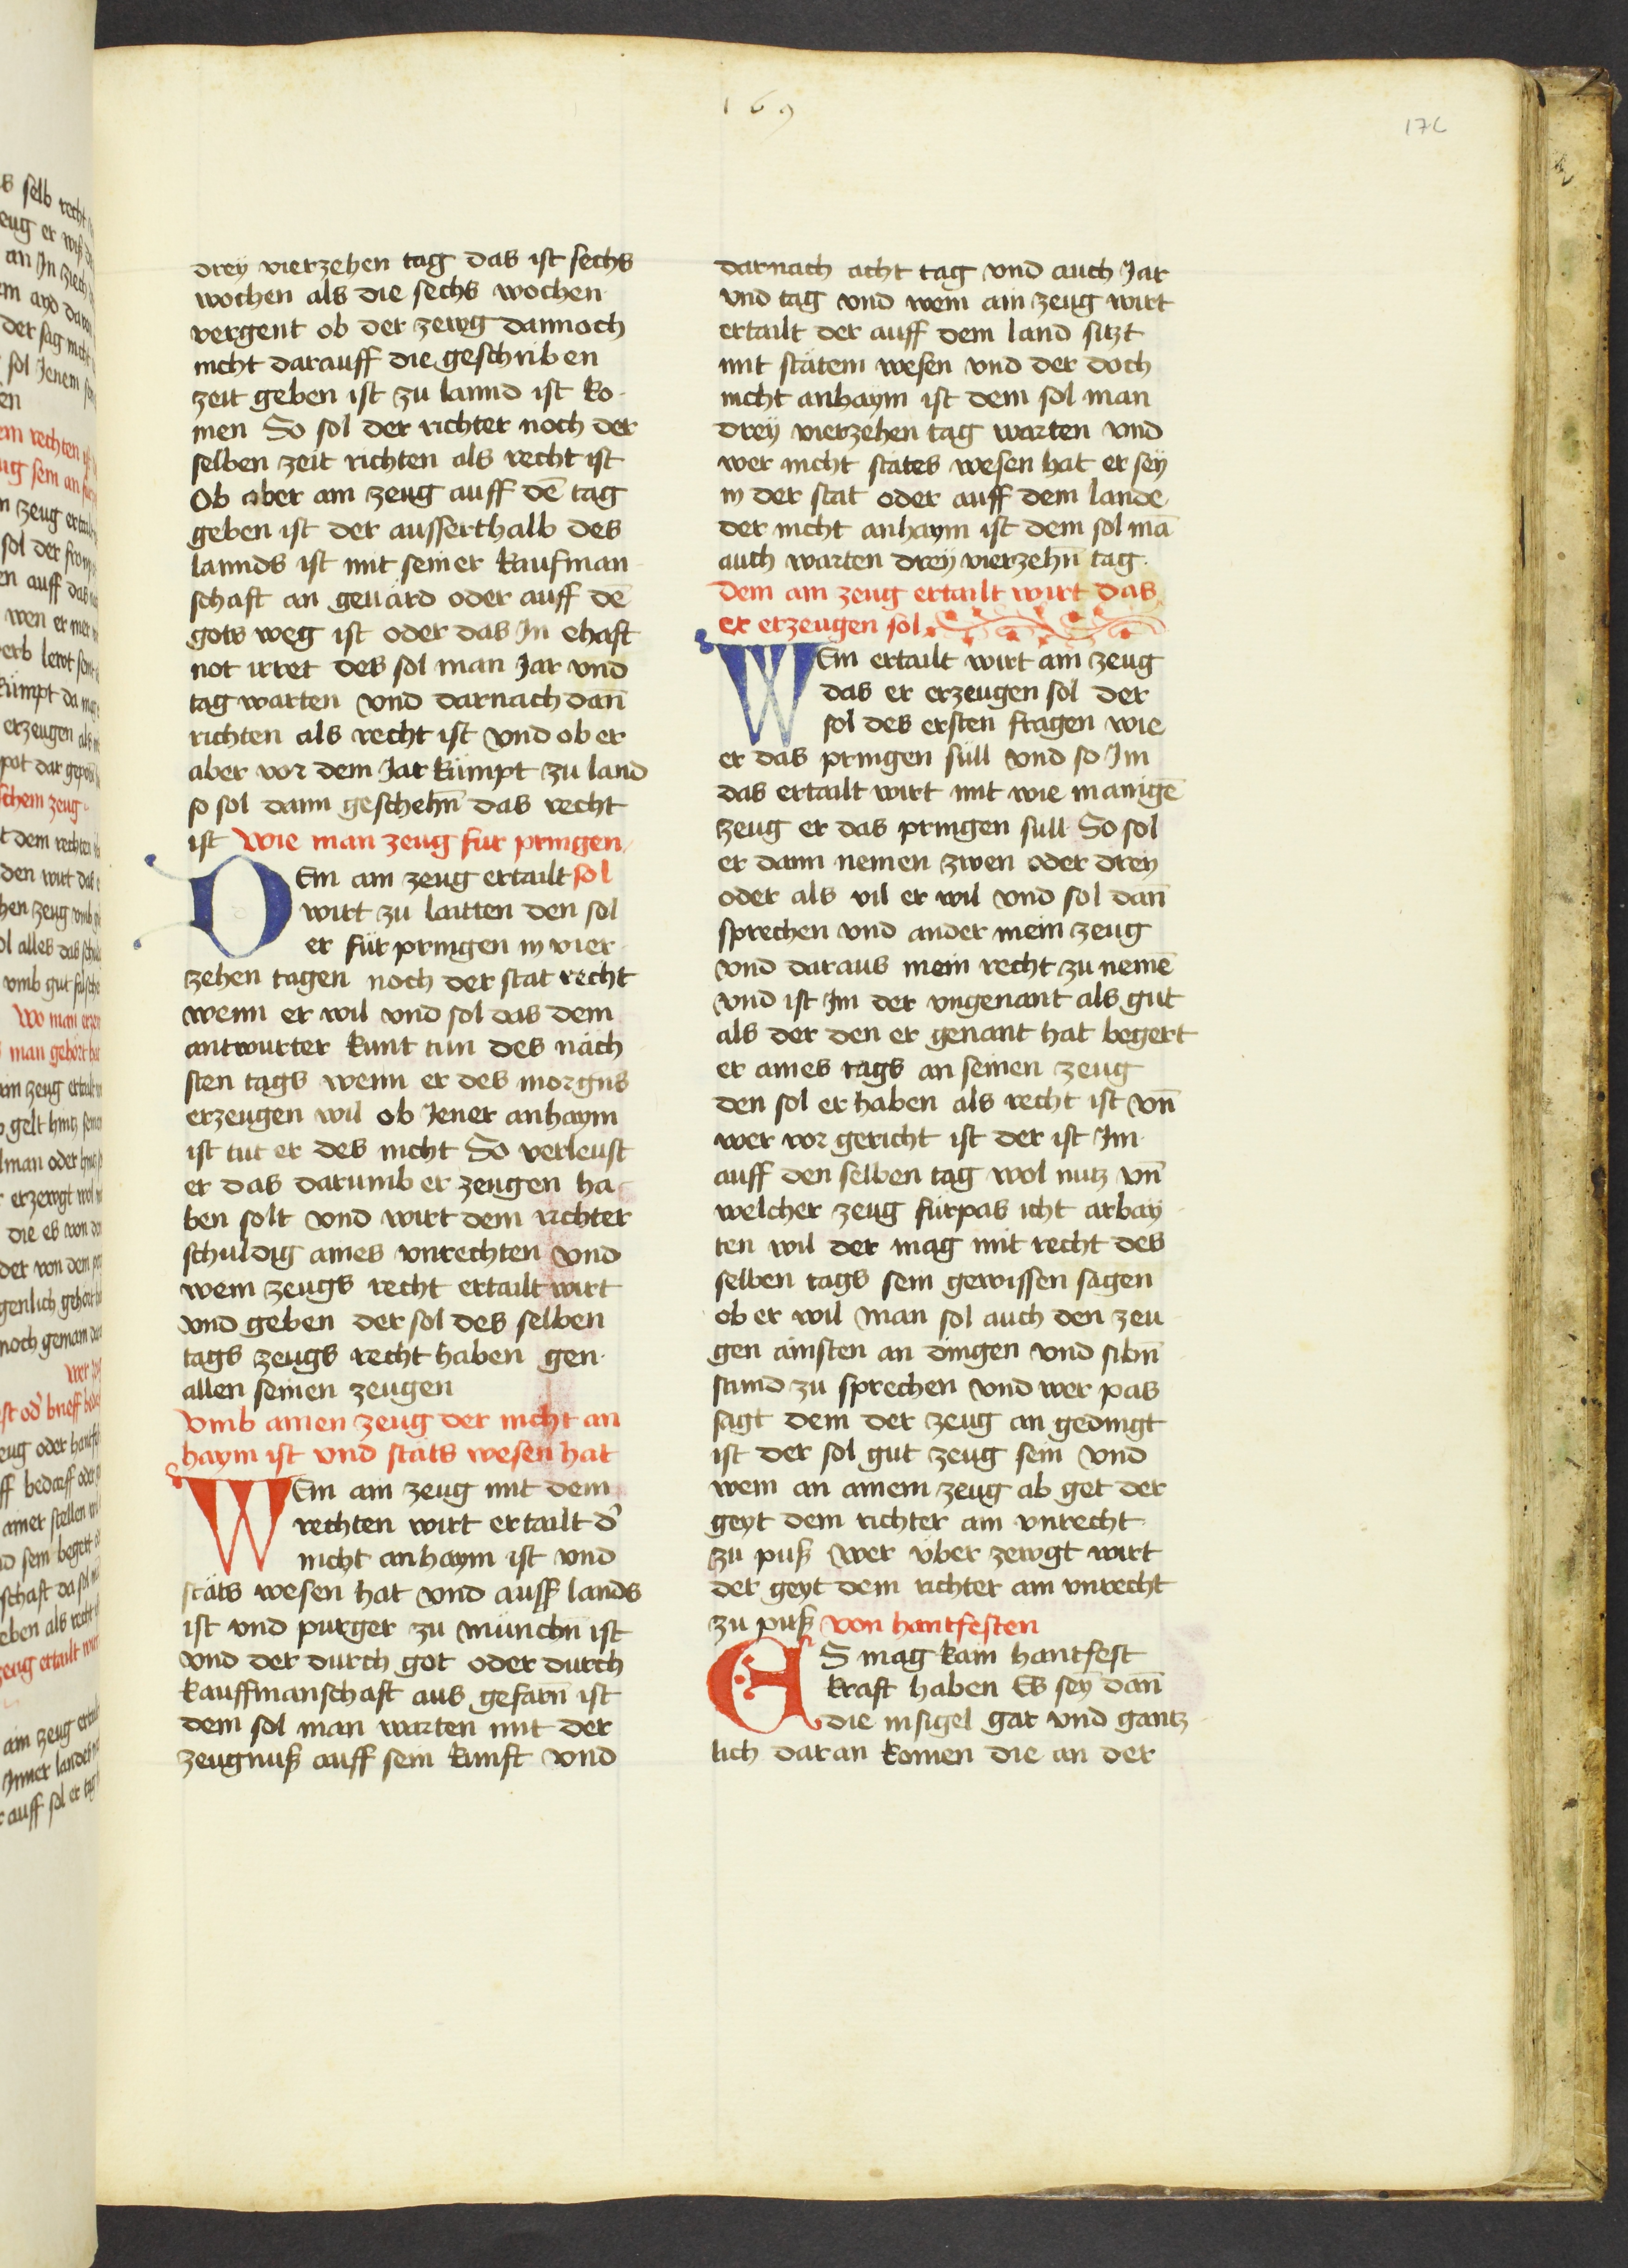 169
176
drey vierzehen tag das ist sechs
wochen als die sechs wochen
vergent ob der zewg dannoch
nicht darauff die geschriben
zeit geben ist zu lannd ist ko-
men So sol der richter noch der
selben zeit richten als recht ist
Ob aber ain zeug auff dē tag
geben ist der ausserthalb des
lannds ist mit seiner kaufman-
schaft an geuärd oder auff dē
gots weg ist oder das Jn ehaft
not irret des sol man Jar vnd
tag warten vnd darnach dan̄
richten als recht ist vnd ob er
aber vor dem Jar kümpt zu land
so sol dann geschehn̄ das recht
ist Wie man zeug für pringen
Dem ain zeug ertailt sol
wirt zu laitten den sol
er für pringen in vier-
zehen tagen noch der stat recht
wenn er wil vnd sol das dem
antwurter kunt tun des näch
sten tags wenn er des morgns
erzeugen wil ob Jener anhaym
ist tut er des nicht So verleust
er das darumb er zeugen ha-
ben solt vnd wirt dem richter
schuldig aines vnrechten vnd
wem zeugs recht ertailt wirt
vnd geben der sol des selben
tags zeugs recht haben gen
allen seinen zeugen
Vmb ainen zeug der nicht an
haym ist vnd stäts wesen hat
Wem ain zeug mit dem
rechten wirt ertailt d'
nicht anhaym ist vnd
stäts wesen hat vnd auss lands
ist vnd purger zu münchn̄ ist
vnd der durch got oder durch
kauffmanschaft aus gefarn̄ ist
dem sol man warten mit der
zeugnuß auff sein kunft vnd
darnach acht tag vnd auch Jar
vnd tag vnd wem ain zeug wirt
ertailt der auff dem land sitzt
mit stätem wesen vnd der doch
nicht anhaym ist dem sol man
drey vierzehen tag warten vnd
wer nicht stätes wesen hat er sey
in der stat oder auff dem lande
der nicht anhaym ist dem sol mā
auch warten drey vierzehn̄ tag.
Dem ain zeug ertailt wirt das
er erzeugen sol
Wem ertailt wirt ain zeug
das er erzeugen sol der
sol des ersten fragen wie
er das pringen süll vnd so Jm
das ertailt wirt mit wie manigē
zeug er das pringen süll So sol
er dann nemen zwen oder drey
oder als vil er wil vnd sol dan̄
sprechen vnd ander mein zeug
vnd daraus mein recht zu nemē
vnd ist Jm der vngenant als gut
als der den er genant hat begert
er aines tags an seinen zeug
den sol er haben als recht ist vn̄
wer vor gericht ist der ist Jm
auff den selben tag wol nutz vn̄
welcher zeug fürpas icht arbay-
ten wil der mag mit recht des
selben tags sein gewissen sagen
ob er wil Man sol auch den zeu-
gen ainsten an dingen vnd sibn̄
stund zu sprechen vnd wer pas
sagt dem der zeug an gedingt
ist der sol gut zeug sein vnd
wem an ainem zeug ab get der
geyt dem richter ain vnrecht
zu puß Wer über zewgt wirt
der geyt dem richter ain vnrecht
zu puß Von hantfesten
ES mag kain hantfest
kraft haben Es sey dan̄
die insigel gar vnd gantz-
lich daran komen die an der